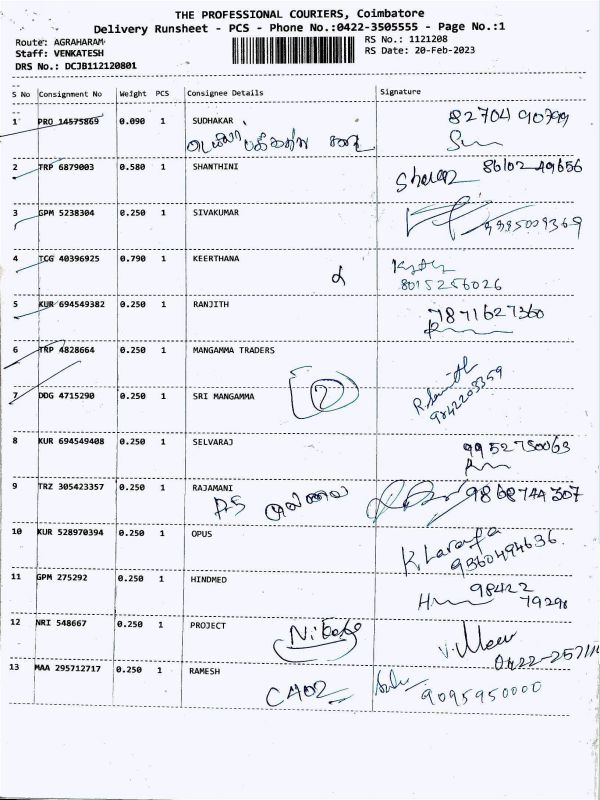 THE PROFESSIONAL COURIERS, Coimbatore
Delivery Runsheet - PCS - Phone No.:0422-3505555 - Page No.:1
Route: AGRAHARAM RS No.: 1121208
Staff: VENKATESH RS Date: 20-Feb-2023
DRS No.: DCJB112120801
S No Consignment No Weight PCS Consignee Details Signature
1 PRO 14575869 0.090 1 SUDHAKAR 82704 90799
2 TRP 6879003 0.580 1 SHANTHINI 86102 49656
3 GPM 5238304 0.250 1 SIVAKUMAR
4 TCG 40396925 0.790 1 KEERTHANA
8015256026
5 KUR 694549382 0.250 1 RANJITH 7871627360
6 TRP 4828664 0.250 1 MANGAMMA TRADERS
7 DDG 4715290 0.250 1 SRI MANGAMMA 9842203359
8 KUR 694549408 0.250 1 SELVARAJ 9952750063
9 TRZ 305423357 0.250 1 RAJAMANI 9868744307
10 KUR 528970394 0.250 1 OPUS
9360494636.
11 GPM 275292 0.250 1 HINDMED 98422
79298
12 NRI 548667 0.250 1 PROJECT
13 MAA 295712717 0.250 1 RAMESH
C402 9095950000